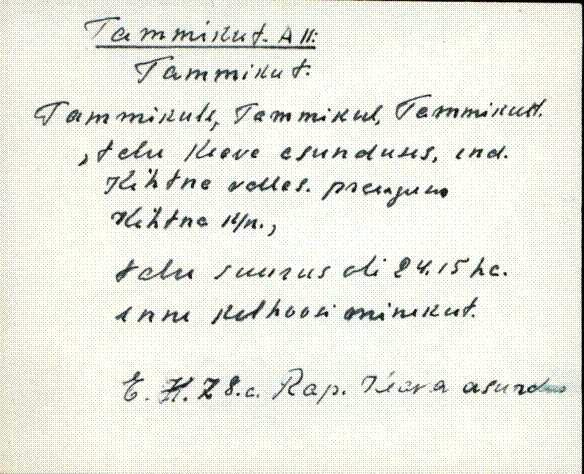 Tammikut. A II:
Tammikut.
Tammikult, Tammikul, Tammikutt.
, talu Keava asunduses, end.
Kehtna vallas. praegune
Kehtna k/n.,
talu suurus oli 24.15 ha.
enne kolhoosi minekut.
E. K. 78.a. Rap. Keava asundus